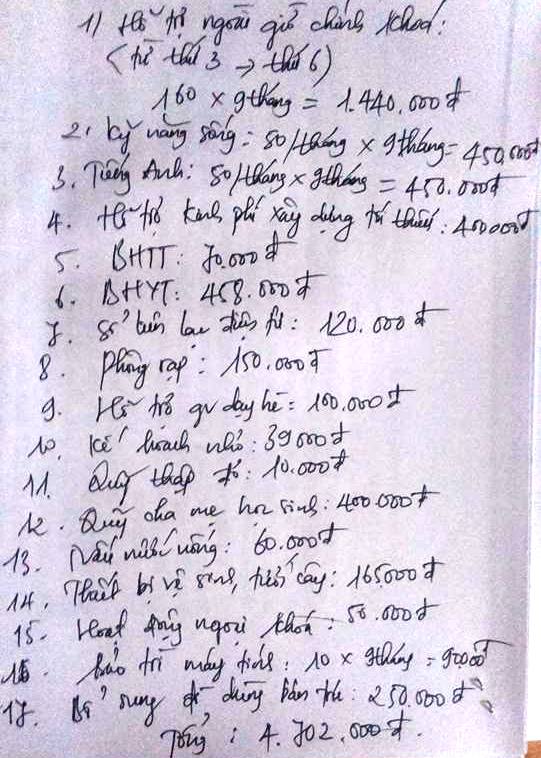 1) Hỗ trợ ngoài giờ chính khoá:
(từ thứ 3 → thứ 6)
160 x 9 tháng = 1.440.000đ
2. Kỹ năng sống: 50/tháng x 9 tháng = 450.000đ
3. Tiếng Anh: 50/tháng x 9 tháng = 450.000đ
4. Hỗ trợ kinh phí xây dựng tối thiểu: 400000đ
5. BHTT: 70.000đ
6. BHYT: 458.000đ
7. Sổ liên lạc điện tử: 120.000đ
8. Phông rạp: 150.000đ
9. Hỗ trợ gv dạy hè: 100.000đ
10. Kế hoạch nhỏ: 39000đ
11. Quỹ thắp đỏ: 10.000đ
12. Quỹ cha mẹ học sinh: 400.000đ
13. Nấu nước uống: 60.000đ
14. Thiết bị vệ sinh, tưới cây: 165000đ
15. Hoạt động ngoại khóa: 50.000đ
16. bảo trì máy tính: 10 x 9 tháng = 90000đ
17. Bổ sung đồ dùng bán trú: 250.000đ
Tổng: 4.702.000đ.